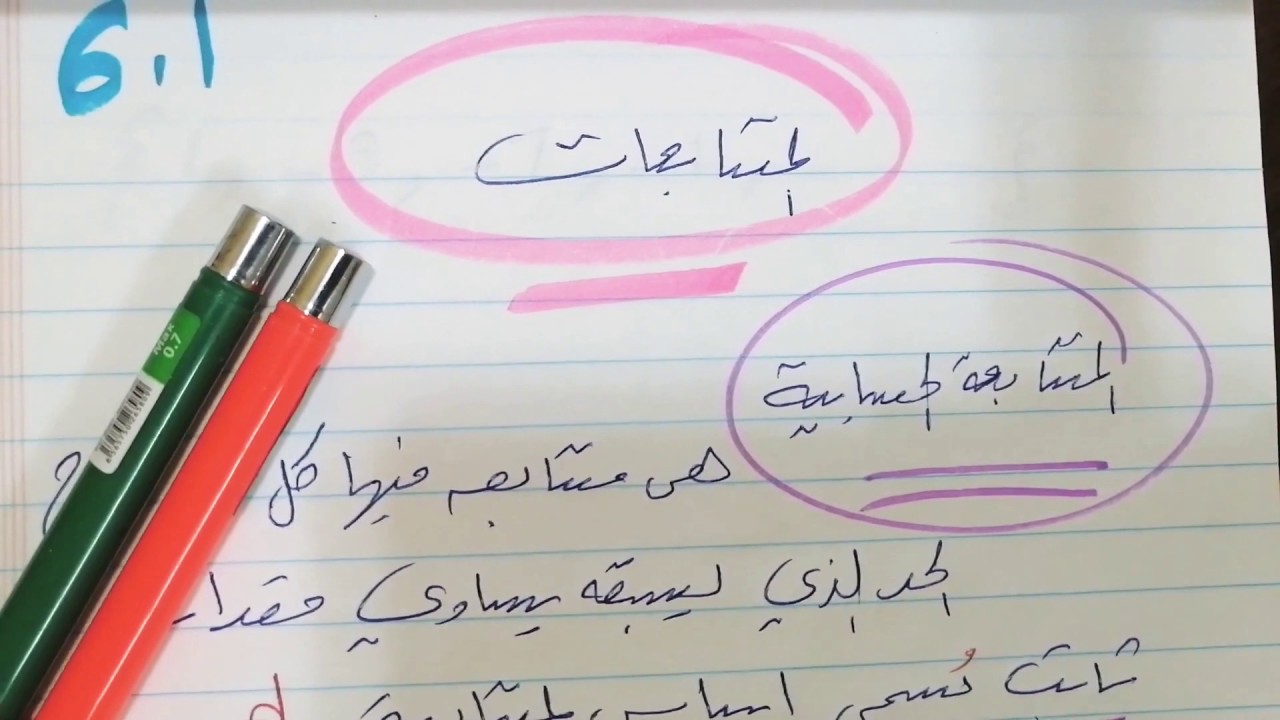 6.1
المتتابعات
المتتابعة الحسابية
هي متتابعه فيها كل
الحد الذي يسبقه يساوي مقدار
ثابت تُسمى اساس المتتابعة d
Max
0.7